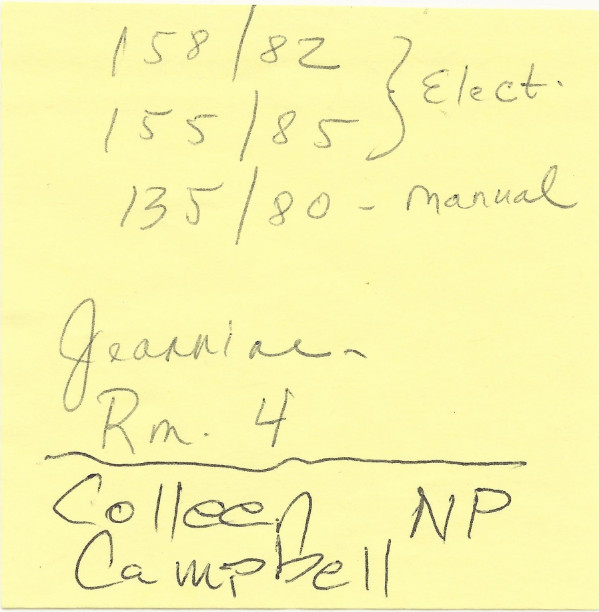 158/82 } Elect.
155/85
135/80 - manual
Jeannine -
Rm. 4
Colleen NP
Campbell